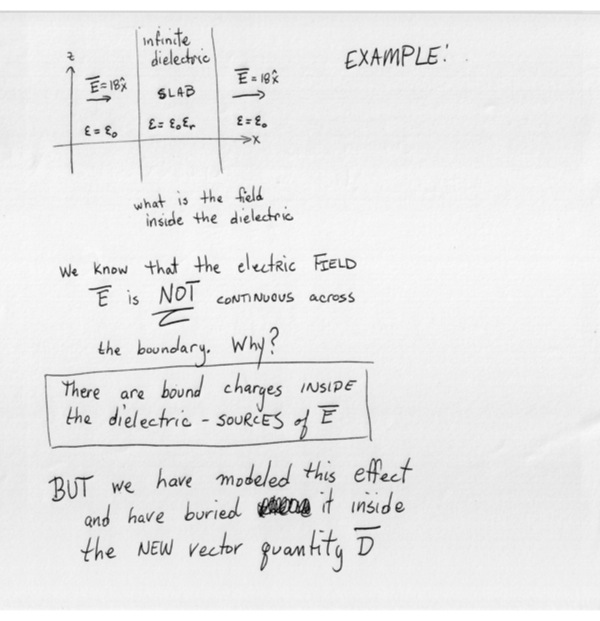 EXAMPLE!
infinite
dielectric
SLAB
z
E̅=18x̂
E̅=18x̂
ε=ε₀
ε=ε₀εᵣ
ε=ε₀
x
what is the field
inside the dielectric
We know that the electric FIELD
E̅ is NOT CONTINUOUS across
the boundary. Why?
There are bound charges INSIDE
the dielectric - SOURCES of E̅
BUT we have modeled this effect
and have buried it inside
the NEW vector quantity D̅